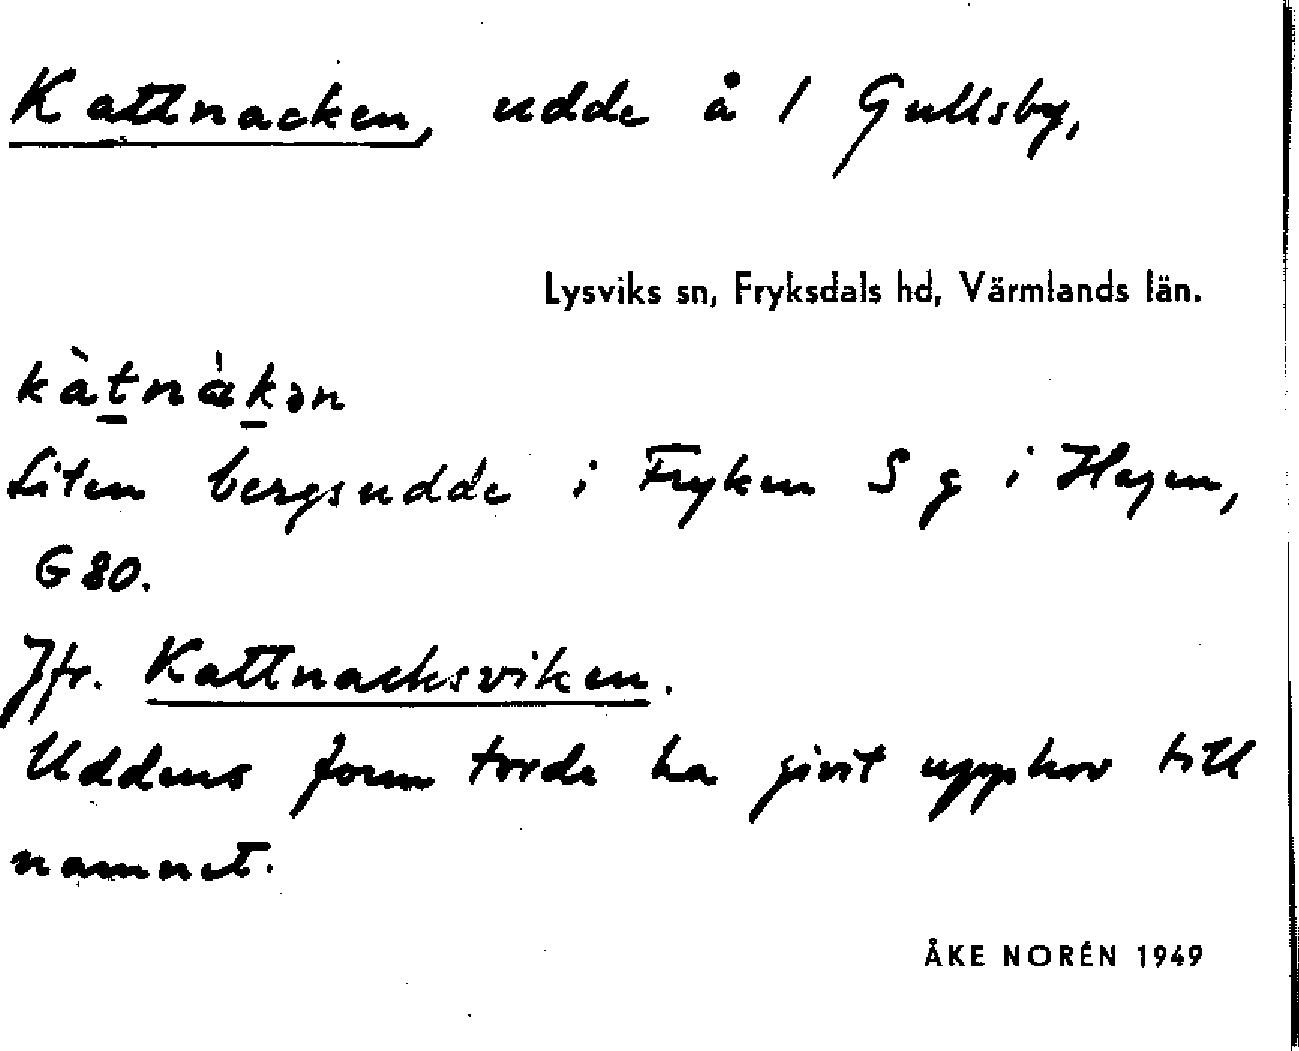 Kattnacken, udde å 1 Gullsby,
Lysviks sn, Fryksdals hd, Värmlands län.
kàt̲nàk̲ən
Liten bergsudde i Fryken S g i Hagen,
G 80.
Jfr. Kattnacksviken.
Uddens form torde ha givit upphov till
namnet.
ÅKE NORÉN 1949